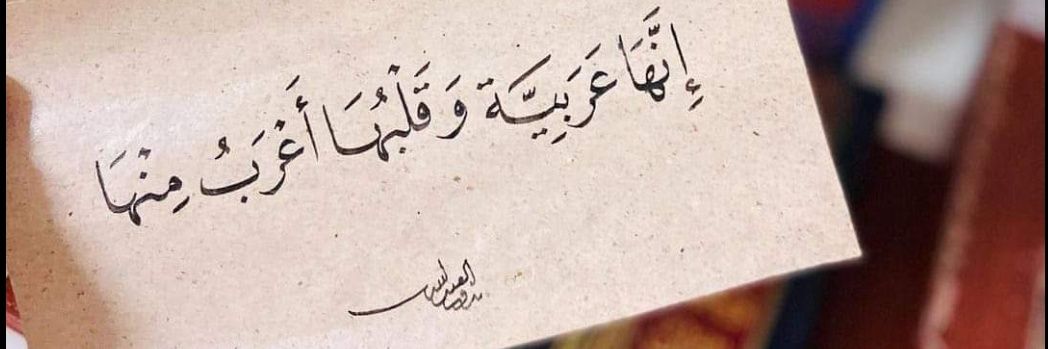 إِنَّهَا عَرَبِيَّة وَ قَلْبُهَا أَغْرَبُ مِنْهَا